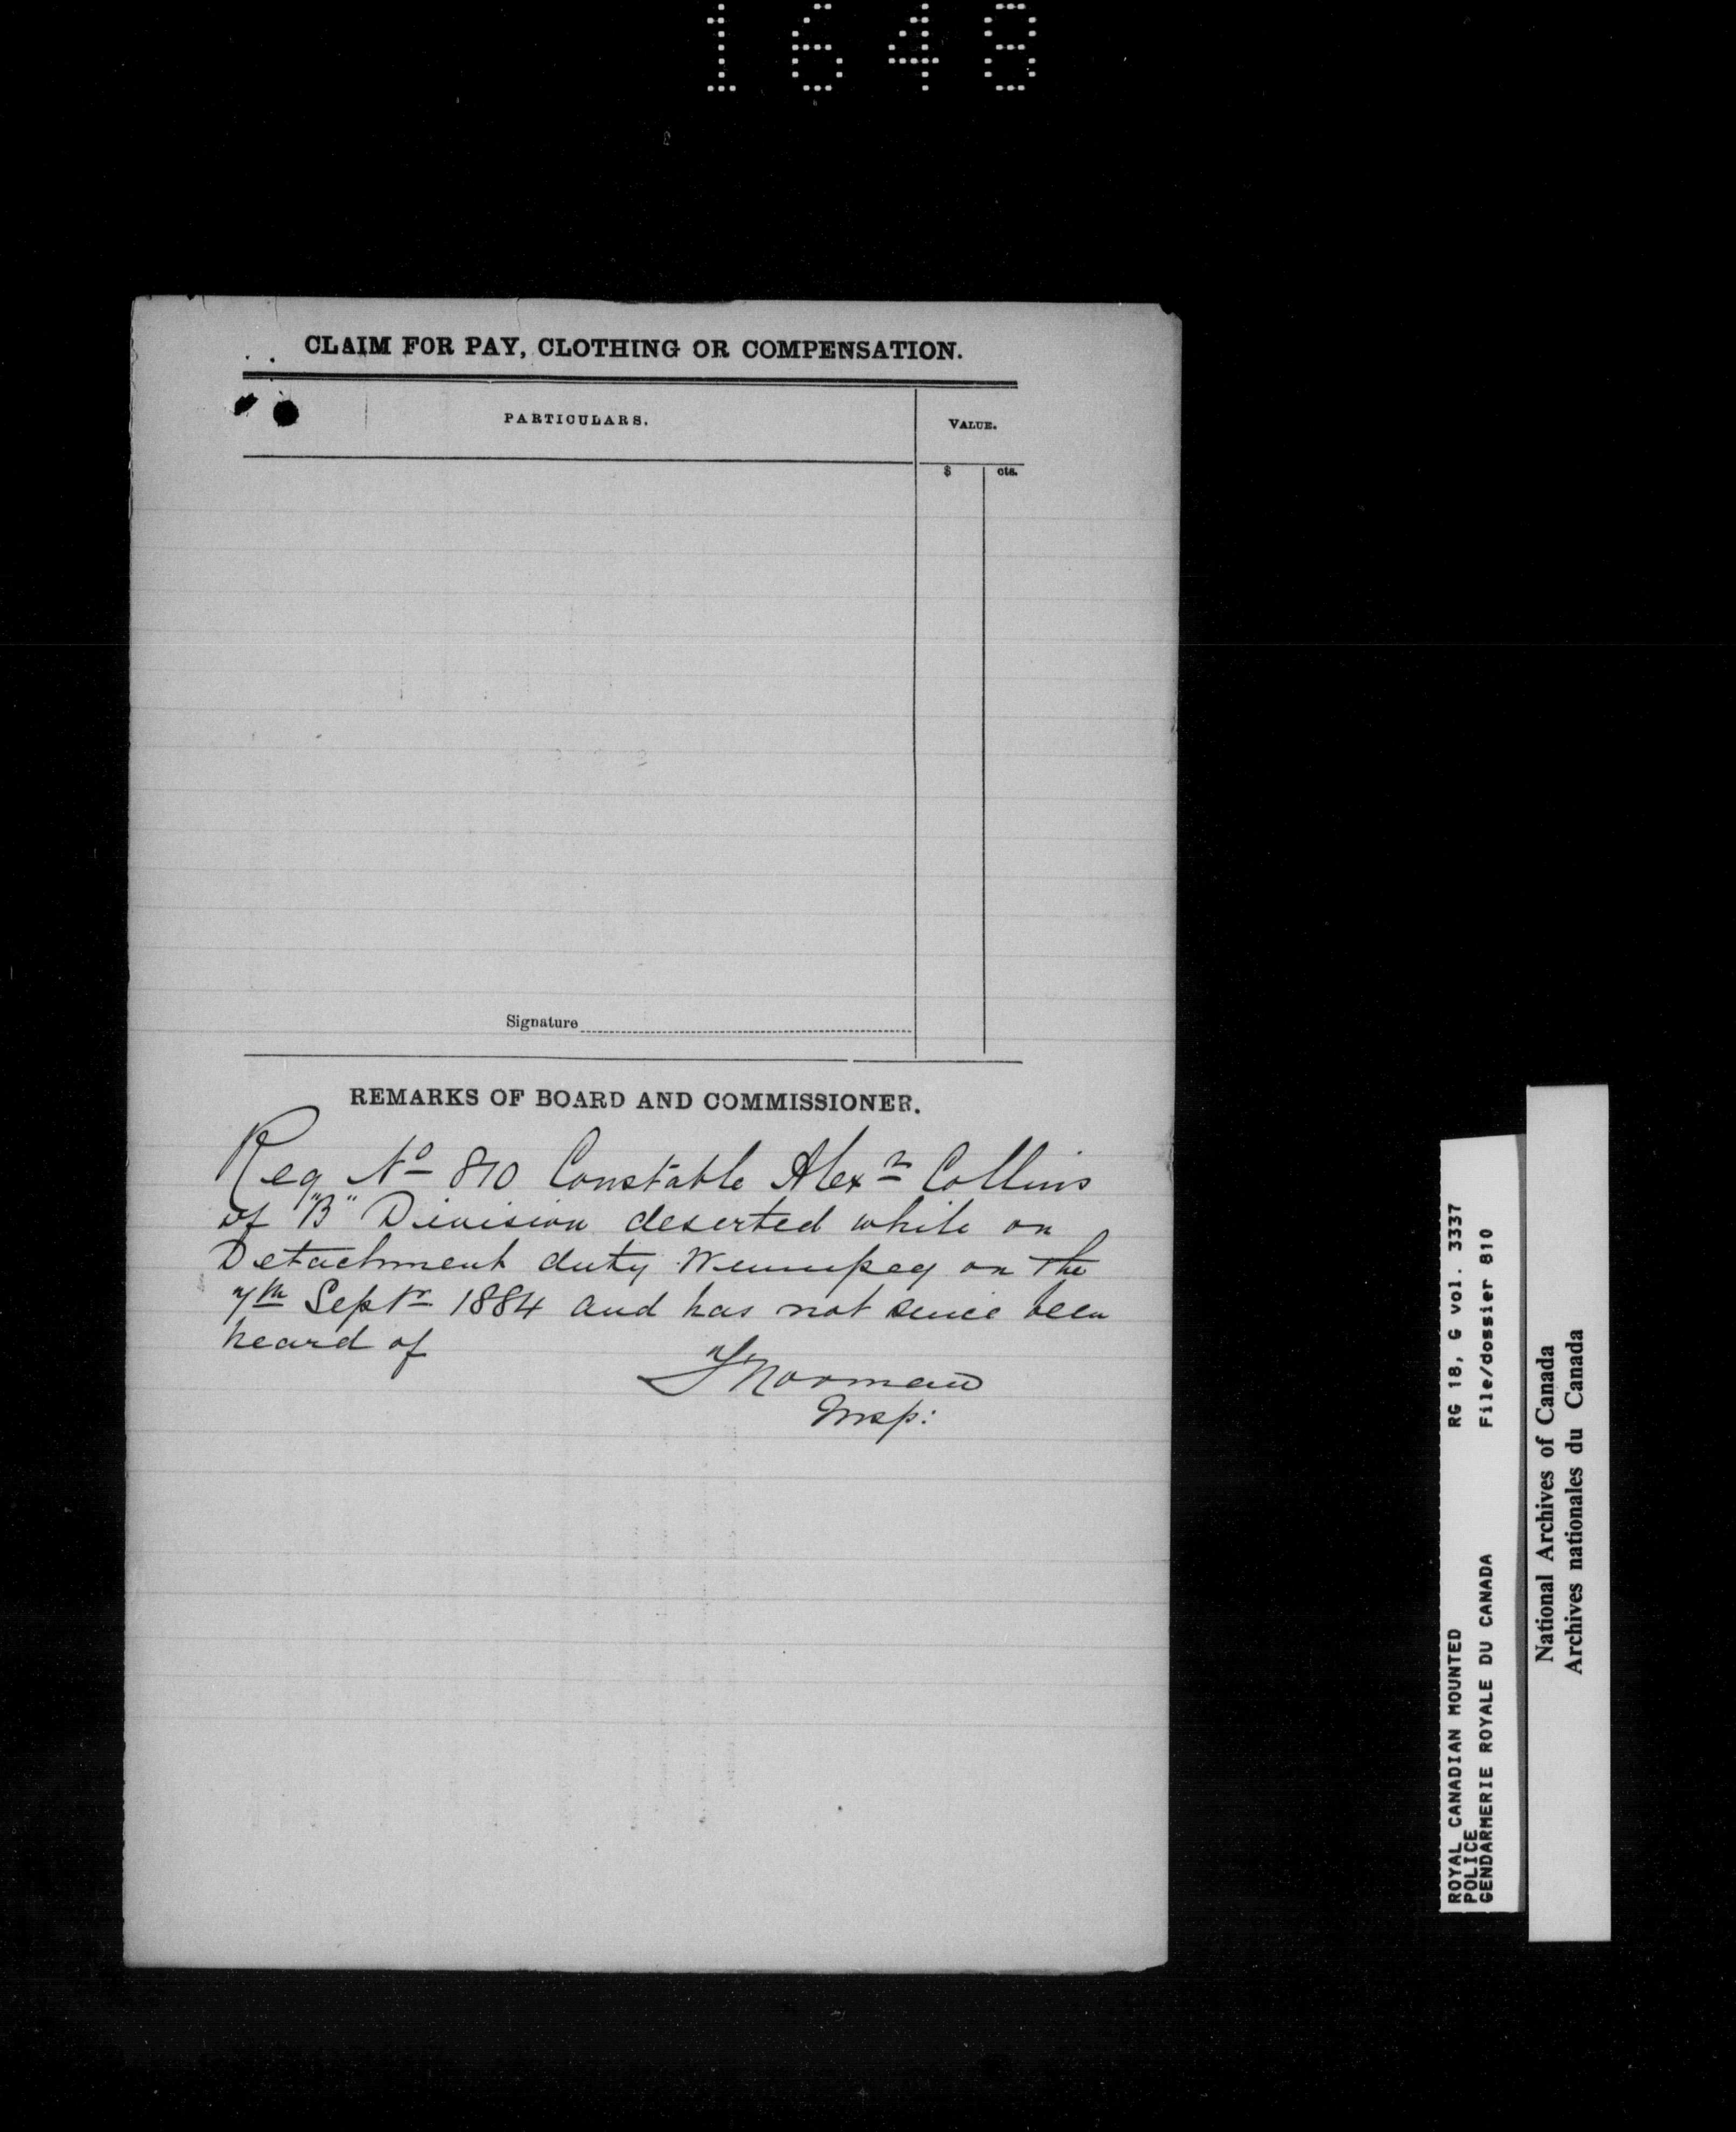 1648
CLAIM FOR PAY, CLOTHING OR COMPENSATION.
PARTICULARS.
VALUE.
$ cts.
Signature
REMARKS OF BOARD AND COMMISSIONER.
Reg No 810 Constable Alexr Collins
of "B" Division deserted while on
Detachment duty Winnipeg on the
7th Septr 1884 and has not since been
heard of
Norman
Insp:
ROYAL CANADIAN MOUNTED RG 18, G vol. 3337
POLICE
GENDARMERIE ROYALE DU CANADA File/dossier 810
National Archives of Canada
Archives nationales du Canada